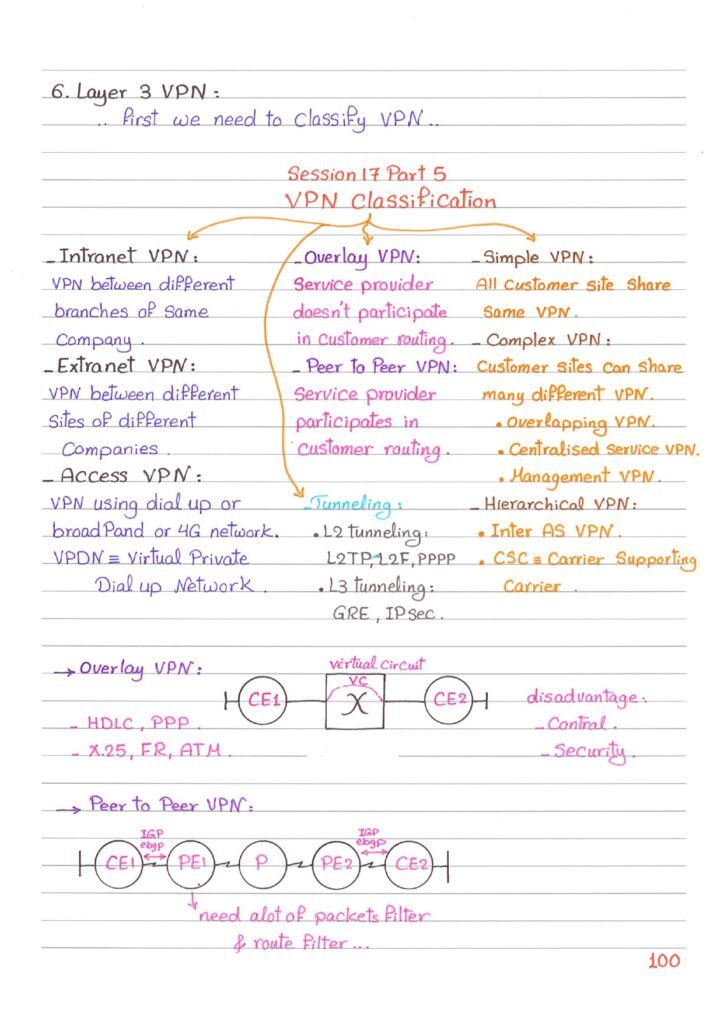 6. Layer 3 VPN:
.. first we need to classify VPN..
Session 17 Part 5
VPN Classification
_Intranet VPN:
VPN between different
branches of same
Company.
_Extranet VPN:
VPN between different
Sites of different
Companies.
_Access VPN:
VPN using dial up or
broadPand or 4G network.
VPDN ≡ Virtual Private
Dial up Network.
_Overlay VPN:
Service provider
doesn't participate
in Customer routing.
_Peer To Peer VPN:
Service provider
participates in
Customer routing.
_Tunneling:
•L2 tunneling:
L2TP, L2F, PPPP
•L3 tunneling:
GRE, IPsec.
_Simple VPN:
All Customer site Share
Same VPN.
_Complex VPN:
Customer sites can Share
many different VPN.
• Overlapping VPN.
• Centralised service VPN.
• Management VPN.
_Hierarchical VPN:
• Inter AS VPN.
• CSC ≡ Carrier Supporting
Carrier.
→ Overlay VPN:
_ HDLC, PPP.
_ X.25, FR, ATM.
virtual circuit
VC
CE1 X CE2
disadvantage:
_Contral.
_Security.
→ Peer to Peer VPN:
IGP
ebgp
IGP
ebgp
CE1 PE1 P PE2 CE2
need alot of packets filter
& route filter...
100